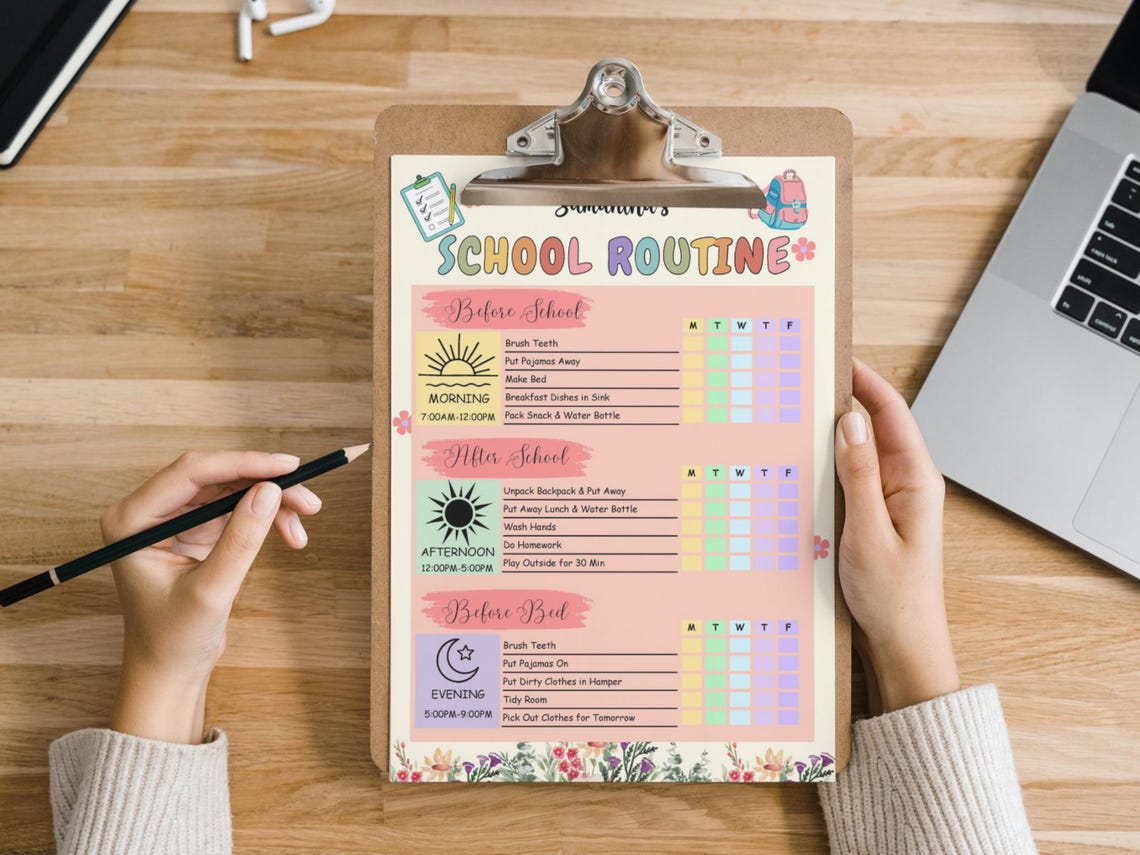 Samantha's
SCHOOL ROUTINE
Before School
M T W T F
Brush Teeth
Put Pajamas Away
Make Bed
Breakfast Dishes in Sink
Pack Snack & Water Bottle
MORNING
7:00AM-12:00PM
After School
M T W T F
Unpack Backpack & Put Away
Put Away Lunch & Water Bottle
Wash Hands
Do Homework
Play Outside for 30 Min
AFTERNOON
12:00PM-5:00PM
Before Bed
M T W T F
Brush Teeth
Put Pajamas On
Put Dirty Clothes in Hamper
Tidy Room
Pick Out Clothes for Tomorrow
EVENING
5:00PM-9:00PM
tab
caps lock
shift
fn
control